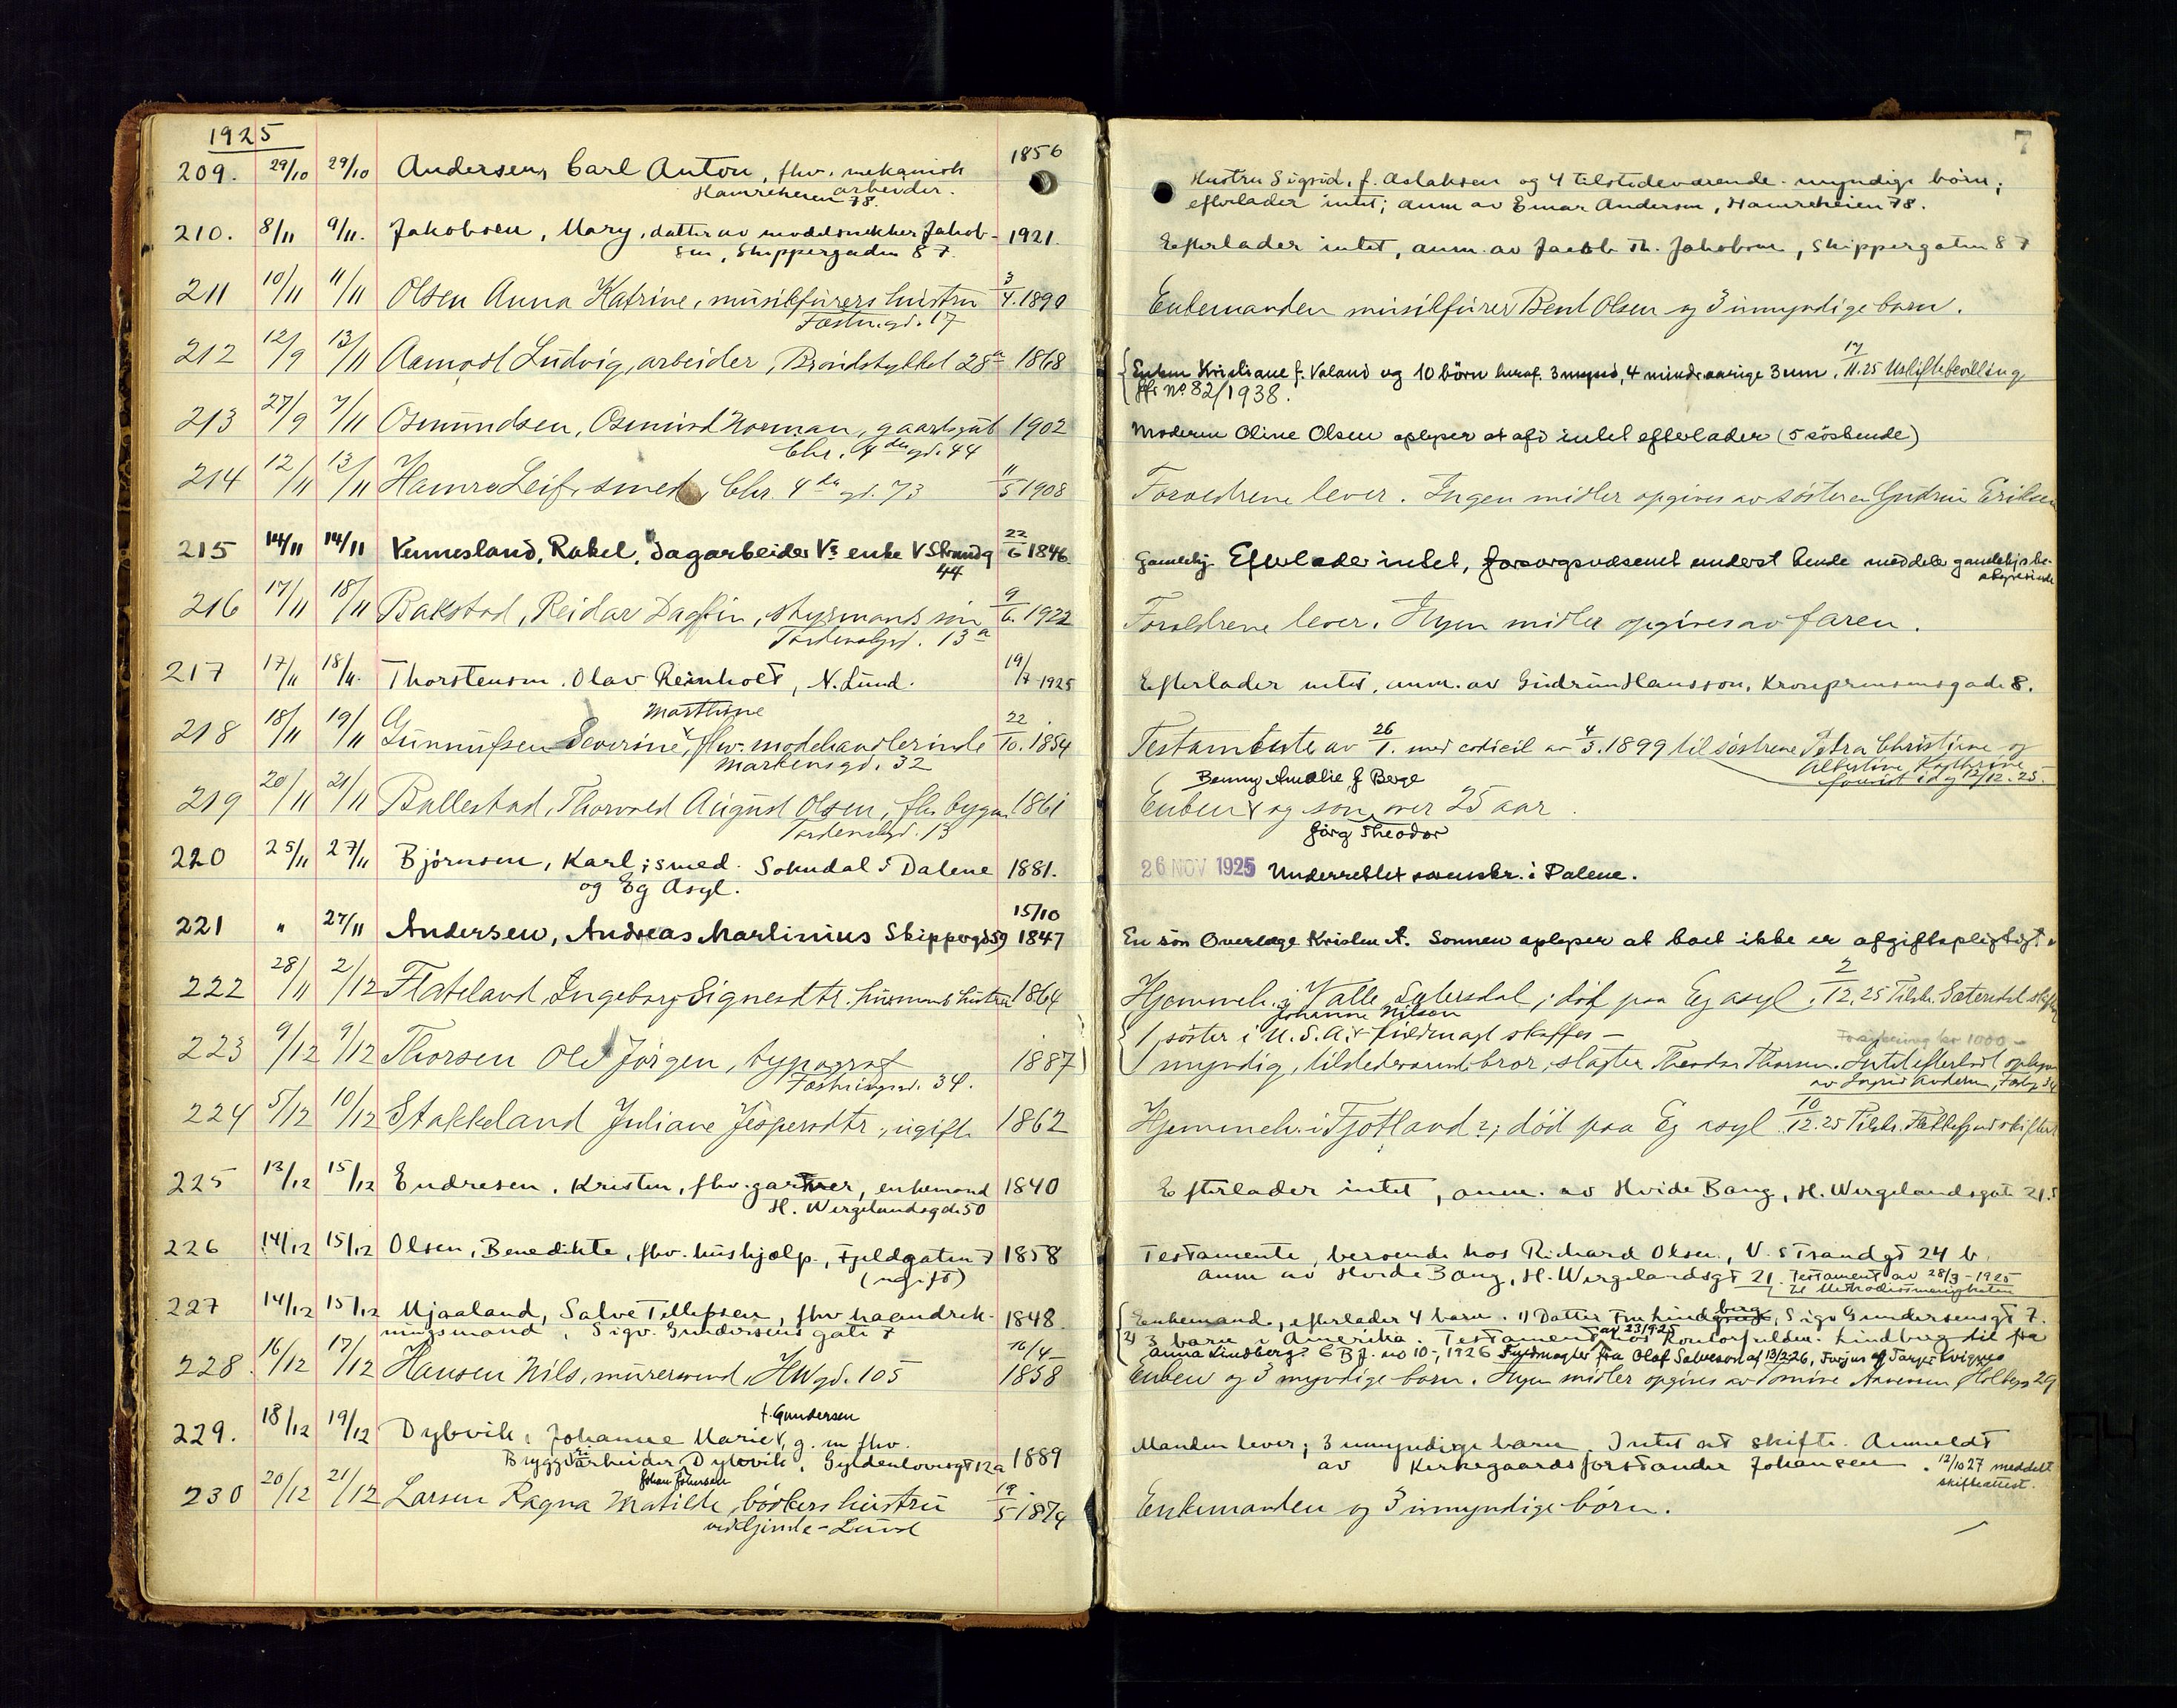 1925
7
209. 29/10 29/10 Andersen, Carl Anton, fhv. mekanisk 1856
arbeider.
Hamreheien 78.
Hustru Sigrid, f. Aslaksen og 4 tilstedeværende myndige børn;
efterlader intet; anm av Einar Andersen, Hamreheien 78.
210. 8/11 9/11. Jakobsen, Mary, datter av modelsnekker Jakob- 1921.
sen, Skippergaden 87.
Efterlader intet, anm. av Jacob Th. Jakobsen, Skippergaten 87
211 10/11 11/11 Olsen Anna Katrine, musikførers hustru 3/4.1890
Fæstn.gd. 17
Enkemanden musikfører Bent Olsen og 3 umyndige barn.
212 12/9 13/11 Aamodt Ludvig, arbeider, Brøndstykket 28a 1868
Enken Kristiane f. Valand og 10 børn heraf 3 mynd, 4 mindreaarige 3 um. 17/11.25 Uskiftebevilling
Jfr No. 82/1938.
213 27/9 7/11 Osmundsen, Osmund Norman, gaardsgut 1902
Chr. 4des gd. 44
Moderen Oline Olsen oplyser at afd intet efterlader (5 søskende)
214 12/11 13/11 Hamre Leif, smed, Chr. 4des gd. 73 11/5 1908
Forældrene lever. Ingen midler opgives av søsteren Gudrun Eriksen
215 14/11 14/11 Vennesland, Rakel, dagarbeider Vs enke V Strandg 22/6 1846.
44
Gamlehj. Efterlader intet, forsorgsvæsenet underst hende meddeler gamlehjs be-
styrerinde
216 17/11 18/11 Bakstad, Reidar Dagfin, styrmands søn 9/6.1922
Tordenskjgd. 13a
Forældrene lever. Ingen midler opgives av faren.
217 17/11 18/11. Thorstensen. Olav Reinholt, N. Lund. 19/7-1925
Efterlader intet, anm. av Gudrun Hansson, Kronprinsensgade 8.
Marthine
218 18/11 19/11 Gunnufsen Severine, fhv. modehandlerinde 22/10.1854
Markensgd. 32
Testamente av 26/1. med codicil av 4/3.1899 til søstrene Petra Christine og
Albertine Kathrine
219 20/11 21/11 Ballestad, Thorvald August Olsen, fhv. bygm. 1861
Tordenskjgd. 13
Benny Amalie f Berge
Enken og søn over 25 aar.
Jørg Theodor
220 25/11 27/11 Bjørnsen, Karl, smed. Sokndal i Dalene 1881.
og Eg Asyl.
26 NOV 1925 Underrettet sorenskr. i Dalene.
221 " 27/11 Andersen, Andreas Martinius Skippergd 59 15/10 1847
En søn Overlæge Kristen A. Sønnen oplyser at boet ikke er afgiftspligtigt
222 28/11 2/12 Flateland, Ingeborg Signesdtr. husmands hustru 1864
Hjemmeh. i Valle Sætersdal; død paa Eg asyl. 2/12.25 Tilskr. Sætersdal skifter
223 9/12 9/12 Thorsen Ole Jørgen, typograf 1887
Fæstningsgd. 34.
Johanne Nilson
1 søster i U.S.A. fuldmagt skaffes –
Forsikring kr 1000 –
1 myndig, tilstedeværende bror, slagter Theodor Thorsen. Intet efterladt oplyser
av Ingrid Andersen, Fæstng 34
224 5/12 10/12 Stakkeland Juliane Jespersdtr, ugift 1862
Hjemmeh. i Fjotland?; død paa Eg asyl. 10/12.25 Tilskr. Flekkefjord skifteret
225 13/12 15/12 Endresen, Kristen, fhv. gartner, enkemand 1840
H. Wergelandsgd. 50
Efterlader intet, anm. av Hvide Bang, H. Wergelandsgate 21.
226 14/12 15/12 Olsen, Benedikte, fhv. hushjælp, Fjeldgaten 7 1858
(ugift)
Testamente beroende hos Richard Olsen, V. Strandgt 24 b
anm av Hvide Bang, H. Wergelandsgt 21. Testament av 28/3-1925
til Methodistmenigheten
227 14/12 15/12 Mjaaland, Salve Tellefsen, fhv. haandrek- 1848.
ningsmand, Sigv. Gundersens gate 7
Enkemand, efterlader 4 barn. 1) Datter Fru Lindberg, Sigv Gundersensgt 7.
2) 3 barn i Amerika. Testament av 23/9-25 hos Kontorfuldm. Lindberg til fra
Anna Lindberg. C B J. no 10-, 1926 Fuldmagter fra Olaf Salveson af 13/2 26,
228. 16/12 17/12 Hansen Nils, murersvend, HWgd. 105 16/4- 1858
Enken og 3 myndige barn. Ingen midler opgives av Tomine Aanensen, Holbgs 29
f. Gundersen
229. 18/12 19/12 Dybvik, Johanne Marie, g. m fhv.
Bryggeriarbeider Dybvik, Gyldenløvesgt 12a 1889
Manden lever; 3 umyndige barn. Intet at skifte. Anmeldt
av Kirkegaardsforstander Johansen. 12/10 27 meddelt
skifteattest.
Johan Johansen
230 20/12 21/12 Larsen Ragna Matilde, bødkers hustru 19/5 1879
Lund
Enkemanden og 3 umyndige børn.